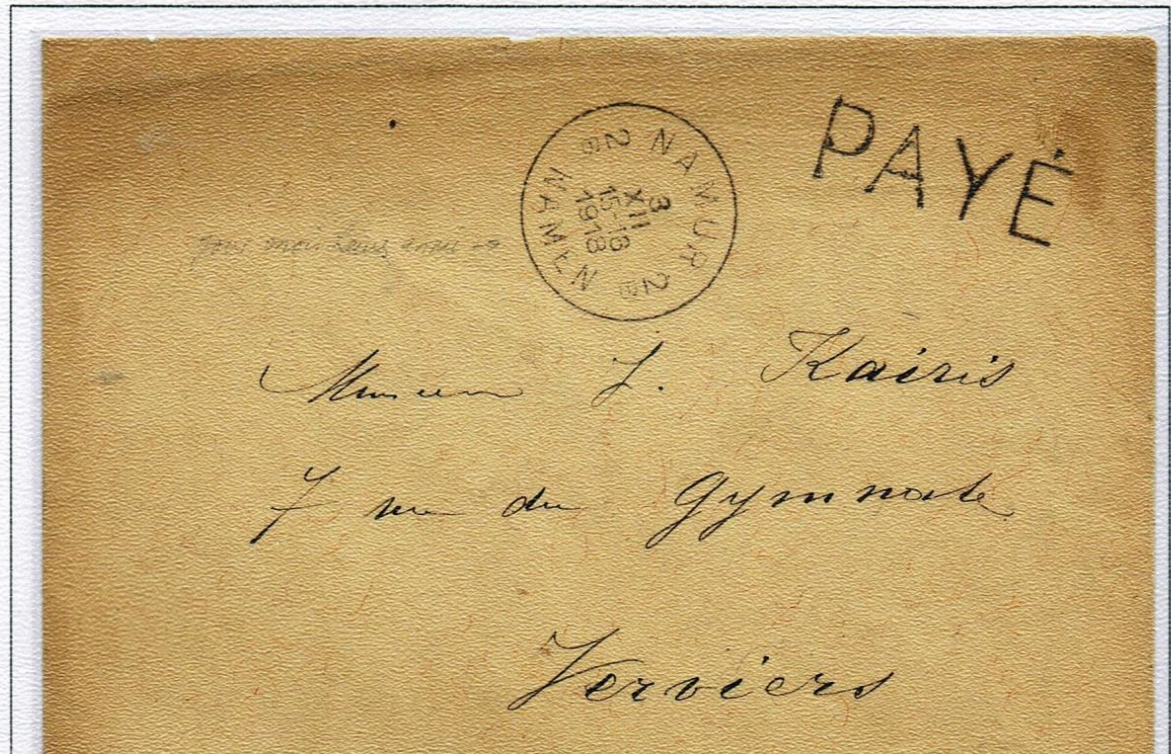 PAYÉ
NAMUR 2B
3
XII
15-16
1918
2B NAMEN
pour mon
Monsieur J. Kairis
7 rue du Gymnase
Verviers